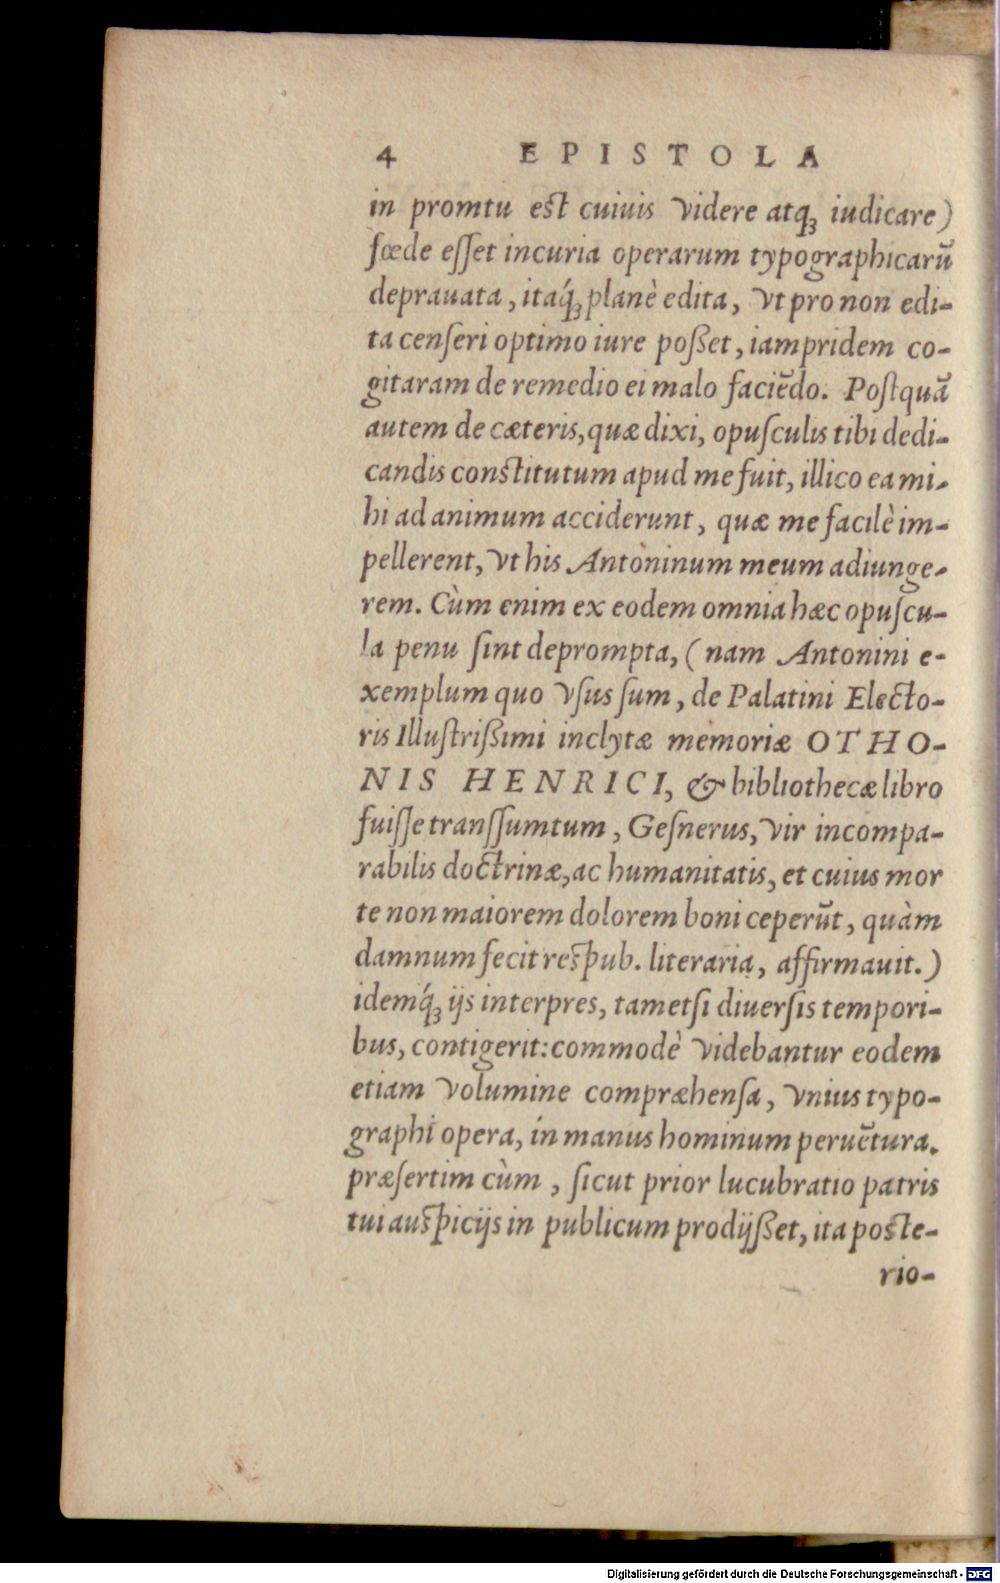 4 EPISTOLA
in promtu est cuiuis videre atq́; iudicare)
fœde esset incuria operarum typographicarũ
deprauata, itaq́; planè edita, vt pro non edi-
ta censeri optimo iure poßet, iampridem co-
gitaram de remedio ei malo faciẽdo. Postquã
autem de cæteris, quæ dixi, opusculis tibi dedi-
candis constitutum apud me fuit, illico ea mi-
hi ad animum acciderunt, quæ me facilè im-
pellerent, vt his Antòninum meum adiunge-
rem. Cùm enim ex eodem omnia hæc opuscu-
la penu sint deprompta, (nam Antonini e-
xemplum quo vsus sum, de Palatini Electo-
ris Illustrißimi inclytæ memoriæ OTHO-
NIS HENRICI, & bibliothecæ libro
fuisse transsumtum, Gesnerus, vir incompa-
rabilis doctrinæ, ac humanitatis, et cuius mor
te non maiorem dolorem boni ceperũt, quàm
damnum fecit respub. literaria, affirmauit.)
idemq́; ijs interpres, tametsi diuersis tempori-
bus, contigerit: commodè videbantur eodem
etiam volumine compræhensa, vnius typo-
graphi opera, in manus hominum peruẽtura.
præsertim cùm, sicut prior lucubratio patris
tui auspicijs in publicum prodijßet, ita poste-
rio-
Digitalisierung gefördert durch die Deutsche Forschungsgemeinschaft - DFG